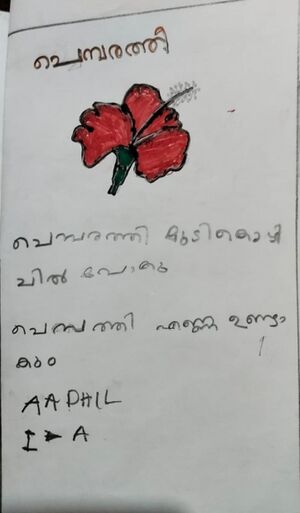 ചെമ്പരത്തി
ചെമ്പരത്തി മുടികൊഴി
ചിൽ പോകു
ചെമ്പത്തി എണ്ണ ഉണ്ടാ
കും
AADHIL
I - A